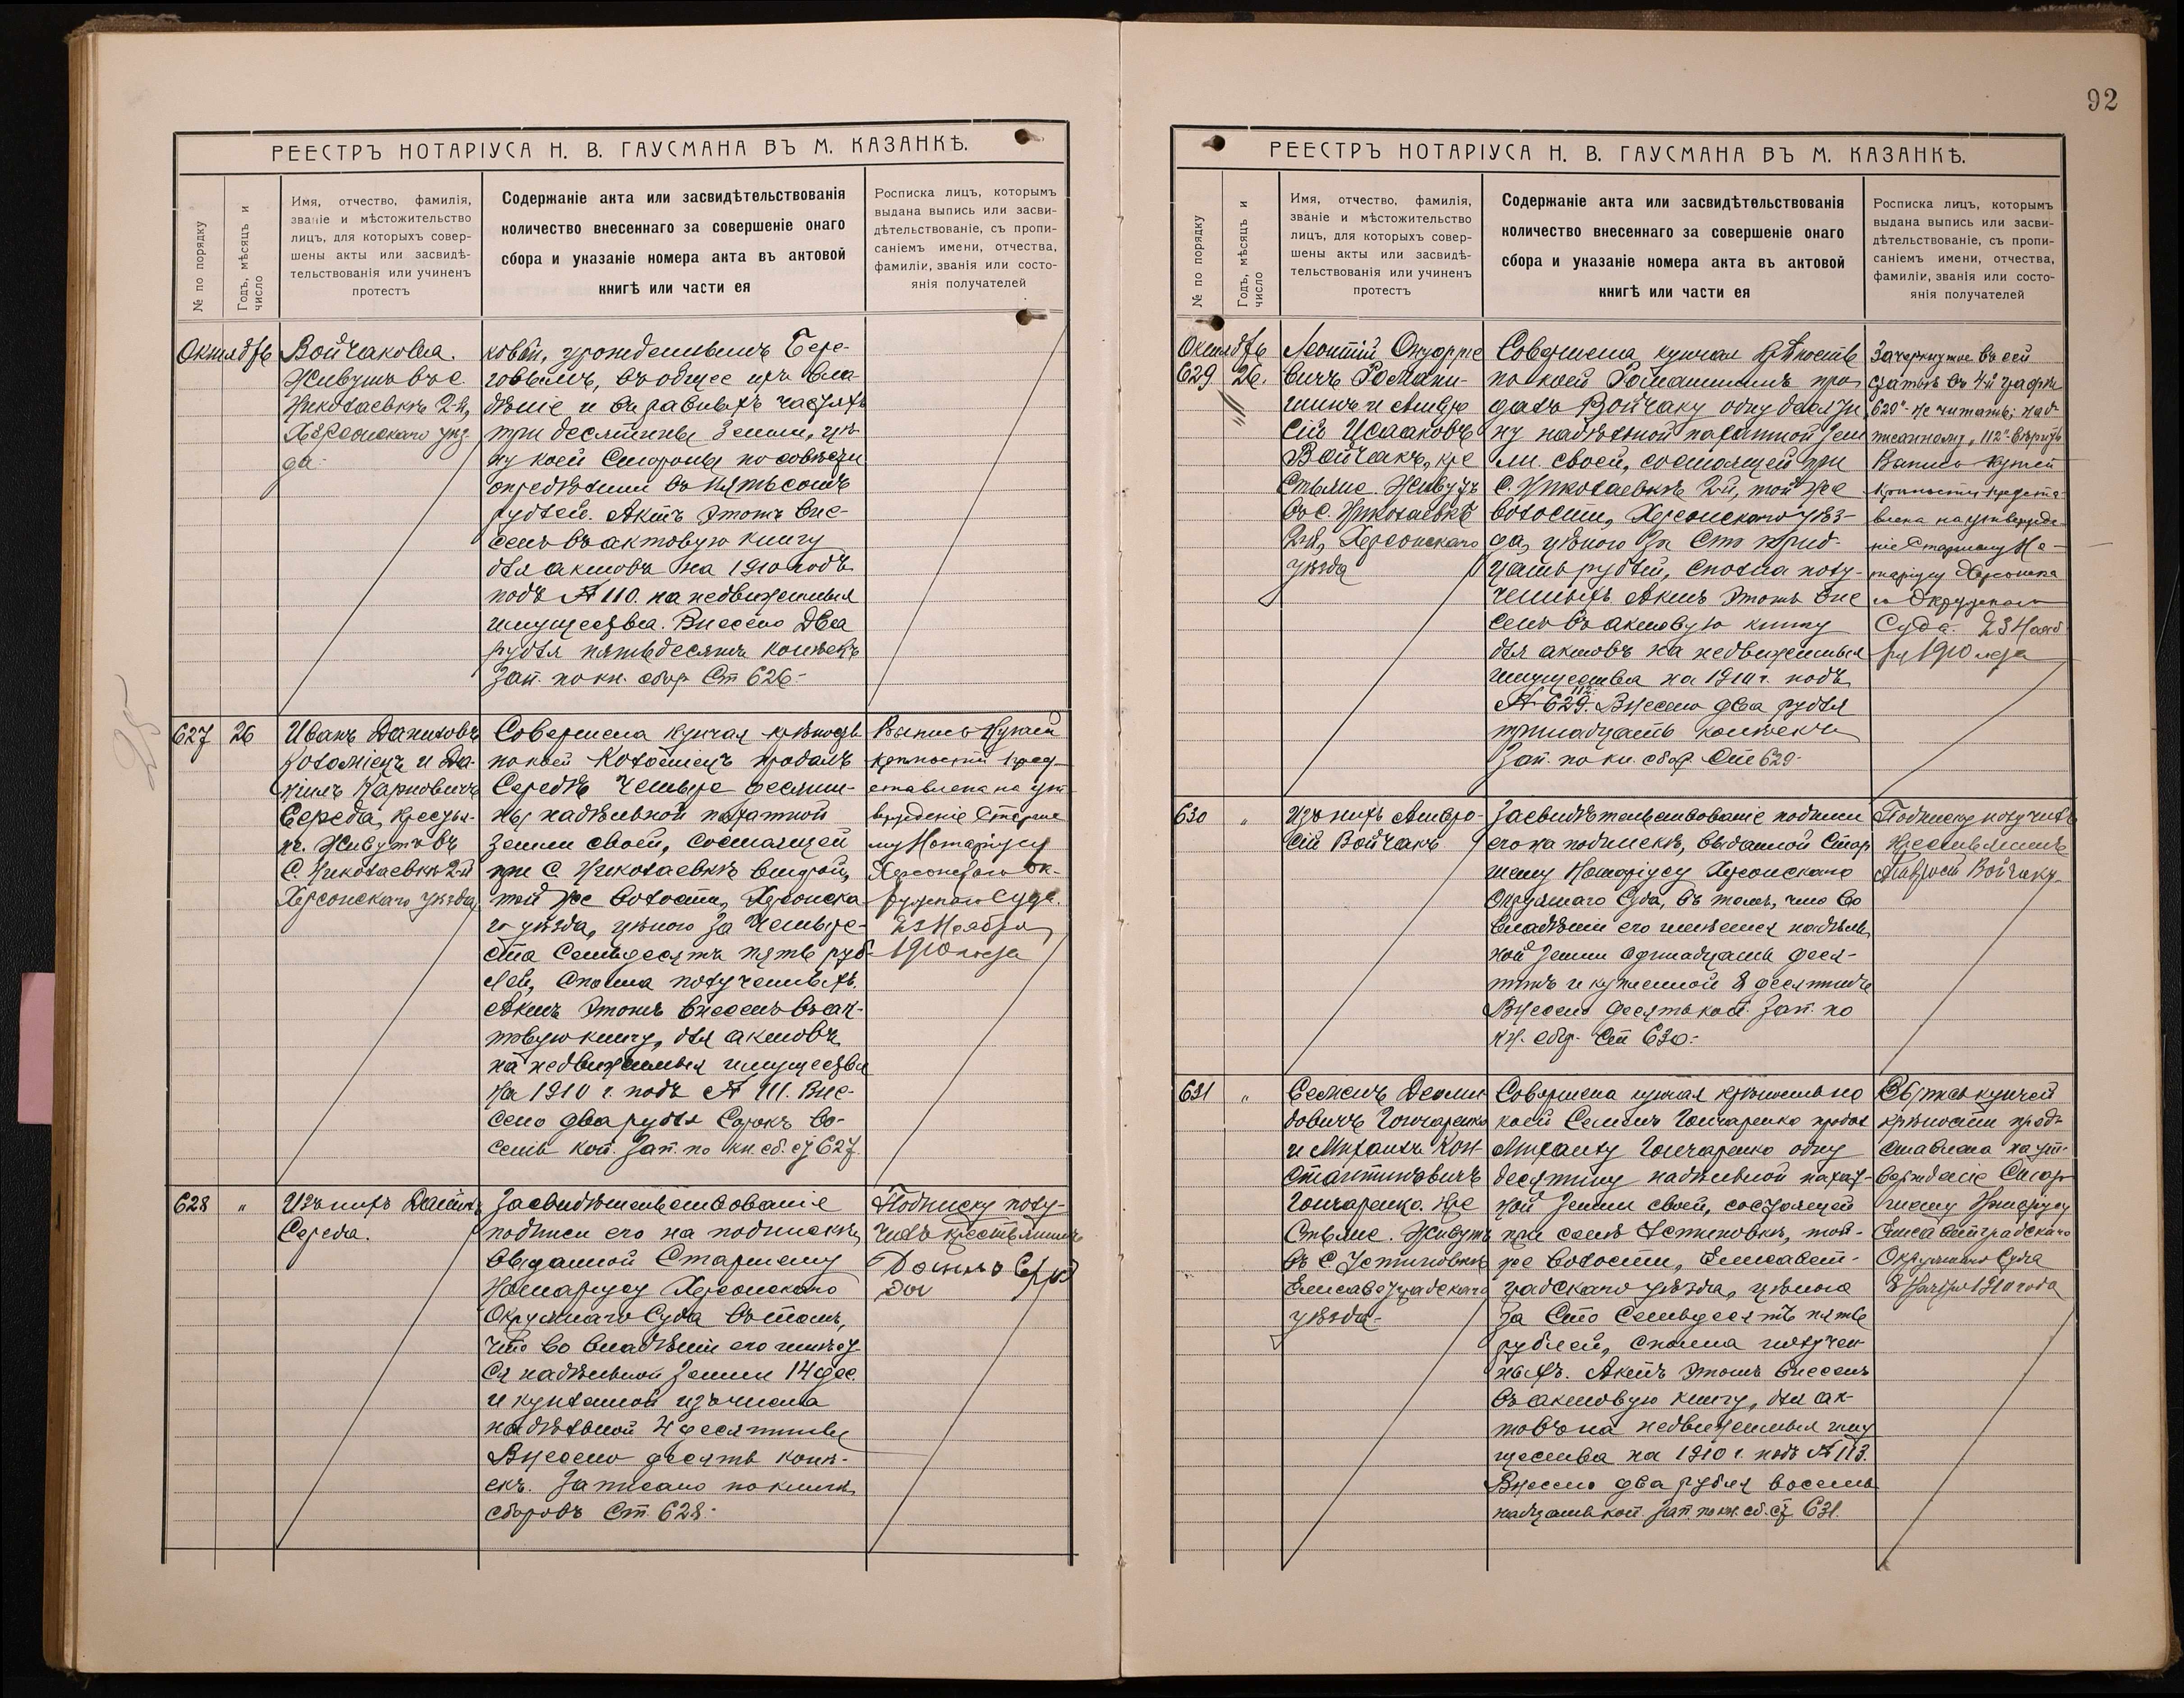 92
РЕЕСТРЪ НОТАРІУСА Н. В. ГАУСМАНА ВЪ М. КАЗАНКѢ.
№ по порядку
Годъ, мѣсяцъ и
число
Имя, отчество, фамилія,
званіе и мѣстожительство
лицъ, для которыхъ совер-
шены акты или засвидѣ-
тельствованія или учиненъ
протестъ
Содержаніе акта или засвидѣтельствованія
количество внесеннаго за совершеніе онаго
сбора и указаніе номера акта въ актовой
книгѣ или части ея
Росписка лицъ, которымъ
выдана выпись или засви-
дѣтельствованіе, съ пропи-
саніемъ имени, отчества,
фамиліи, званія или состо-
янія получателей
Октября
Войчакова.
Живутъ въ с.
Николаевкѣ 2-й,
Херсонскаго уѣз-
да.
ковой, урожденнымъ Бере-
говымъ, въ общее ихъ вла-
дѣніе и въ равныхъ частяхъ
три десятины земли, цѣ-
ну коей стороны по совѣсти
опредѣлили въ пятьсотъ
рублей. Актъ этотъ вне-
сенъ въ актовую книгу
для актовъ на 1910 годъ
подъ № 110. на недвижимыя
имущества. Внесено два
рубля пятьдесятъ копѣекъ
Зап. по кн. сбор. Ст 626-
25
627
26
Иванъ Даниловъ
Коломіецъ и Да-
ніилъ Карповичъ
Середа, крестья-
не. Живутъ въ
С. Николаевкѣ 2-й
Херсонскаго уѣзда,
Совершена купчая крѣпость
по коей Коломіецъ продалъ
Середѣ четыре десяти-
ны надѣльной пахатной
земли своей, состоящей
при С. Николаевкѣ второй,
той же волости, Херсонска-
го уѣзда, цѣною за четыре-
ста семьдесятъ пять руб-
лей, сполна полученныхъ.
Актъ этотъ внесенъ въ ак-
товую книгу, для актовъ
на недвижимыя имущества
на 1910 г. подъ № 111. Вне-
сено два рубля сорокъ во-
семь коп. Зап. по кн. сб. ст 627.
Выпись купчей
крѣпости пред-
ставлена на ут-
вержденіе Старше-
му Нотаріусу
Херсонскаго Ок-
ружнаго Суда.
23 Ноября
1910 года
628
"
Изъ нихъ Даніилъ
Середа.
Засвидѣтельствованіе
подписи его на подпискѣ,
выданной Старшему
Нотаріусу Херсонскаго
Окружнаго Суда въ томъ,
что во владѣніи его имѣет-
ся надѣльной земли 14 дес.
и купленной изъ числа
надѣльной 4 десятины
Внесено десять копѣ-
екъ. Записано по книгѣ
сборовъ Ст. 628.-
Подписку полу-
чилъ крестьянинъ
РЕЕСТРЪ НОТАРІУСА Н. В. ГАУСМАНА ВЪ М. КАЗАНКѢ.
№ по порядку
Годъ, мѣсяцъ и
число
Имя, отчество, фамилія,
званіе и мѣстожительство
лицъ, для которыхъ совер-
шены акты или засвидѣ-
тельствованія или учиненъ
протестъ
Содержаніе акта или засвидѣтельствованія
количество внесеннаго за совершеніе онаго
сбора и указаніе номера акта въ актовой
книгѣ или части ея
Росписка лицъ, которымъ
выдана выпись или засви-
дѣтельствованіе, съ пропи-
саніемъ имени, отчества,
фамиліи, званія или состо-
янія получателей
Октября
629
26.
Леонтій Онуфріе
вичъ Романи-
шинъ и Амвро
сій Исааковъ
Войчакъ, кре
стьяне. Живутъ
въ с. Николаевкѣ
2-й, Херсонскаго
уѣзда
Совершена купчая крѣпость
по коей Романишинъ про-
далъ Войчаку одну десяти
ну надѣльной пахатной зем
ли своей, состоящей при
С. Николаевкѣ 2-й, той же
волости, Херсонскаго уѣз-
да, цѣною за сто трид-
цать рублей, сполна полу-
ченныхъ. Актъ этотъ вне
сенъ въ актовую книгу
для актовъ на недвижимыя
имущества на 1910 г. подъ
112.
№ 629. Внесено два рубля
тринадцать копѣекъ
Зап. по кн. сбор. Ст 629-
Зачеркнутое въ сей
статьѣ въ 4-й графѣ
"629" не читать; над-
писанному "112" вѣрить
Выпись купчей
крѣпости предста-
влена на утвержде-
ніе Старшему Но-
таріусу Херсонска
го Окружнаго
Суда. 23 Нояб
ря 1910 года
630
"
Изъ нихъ Амвро-
сій Войчакъ
Засвидѣтельствованіе подписи
его на подпискѣ, выданной Стар
шему Нотаріусу Херсонскаго
Окружнаго Суда, въ томъ, что во
владѣніи его имѣется надѣль
ной земли одинадцать деся-
тинъ и купленной 8 десятинъ
Внесено десять коп. Зап. по
кн. сбор. Ст 630.-
Подписку получилъ
крестьянинъ
Войчакъ
631
"
Семенъ Деоми
довичъ Гончаренко
и Михаилъ Кон-
стантиновичъ
Гончаренко. Кре
стьяне. Живутъ
въ С Устиновкѣ
Елисаветградскаго
уѣзда-
Совершена купчая крѣпость по
коей Семенъ Гончаренко продал
Михаилу Гончаренко одну
десятину надѣльной пахат-
ной земли своей, состоящей
при селѣ Устиновкѣ, той-
же волости, Елисавет-
градскаго уѣзда, цѣною
за сто семьдесятъ пять
рублей, сполна получен
ныхъ. Актъ этотъ внесенъ
въ актовую книгу, для ак-
товъ на недвижимыя иму
щества на 1910 г. подъ № 113.
Внесено два рубля восем-
надцать коп. Зап. по кн. сб. ст. 631.
Выпись купчей
крѣпости пред-
ставлена на ут-
вержденіе Стар-
шему Нотаріусу
Елисаветградскаго
Окружнаго Суда
8 Ноября 1910 года